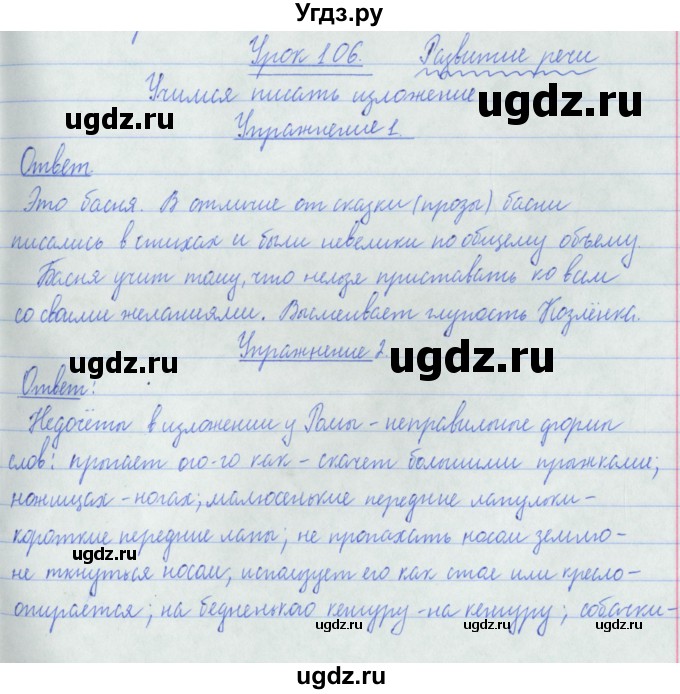 Угдз.ру
Урок 106. Развитие речи
Учимся писать изложение
ugdz.ru ugdz.ru
Упражнение 1.
Ответ
Это басня. В отличие от сказки (прозы) басни
писались в стихах и были невелики по общему объему.
Басня учит тому, что нельзя приставать ко всем
со своими желаниями. Высмеивает глупость Козлёнка.
Упражнение 2.
ugdz.ru ugdz.ru
Ответ:
Недочёты в изложении у Ромы - неправильные формы
слов: прыгает ого-го как - скачет большими прыжками;
ножищах - ногах; малюсенькие передние лапульки -
короткие передние лапы; не пропахать носом землю -
ugdz.ru
не ткнуться носом, использует его как стол или кресло -
опирается; на бедненького кенгуру - на кенгуру; собачки -
ugdz.ru ugdz.ru
ugdz.ru